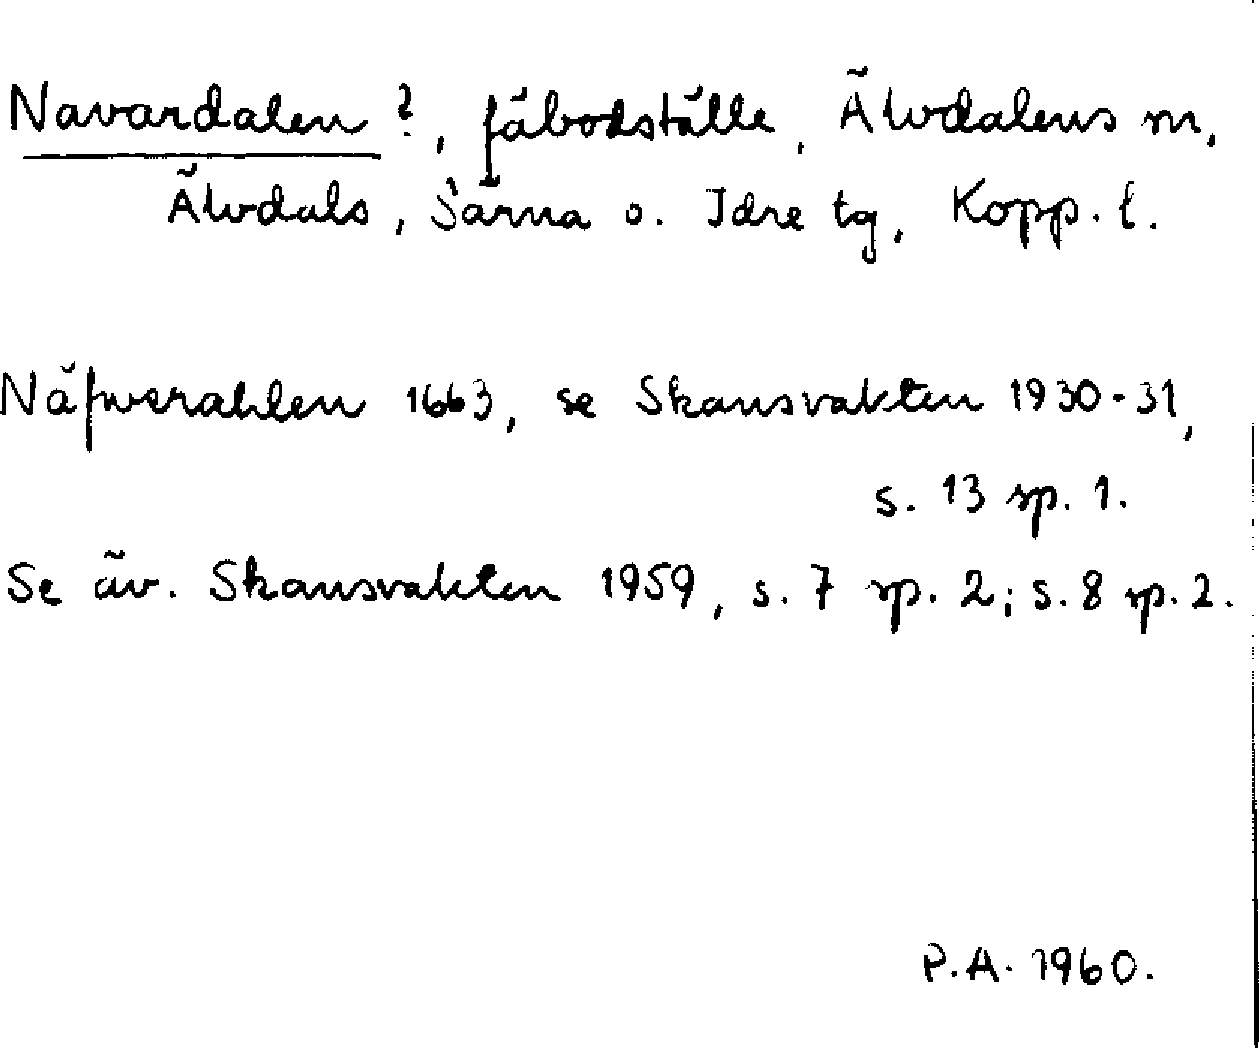 Navardalen ?, fäbodställe, Älvdalens m,
Älvdals, Särna o. Idre tg, Kopp. l.
Näfwerahlen 1663, se Skansvakten 1930-31,
s. 13 sp. 1.
Se äv. Skansvakten 1959, s. 7 sp. 2; s. 8 sp. 2.
P.A. 1960.